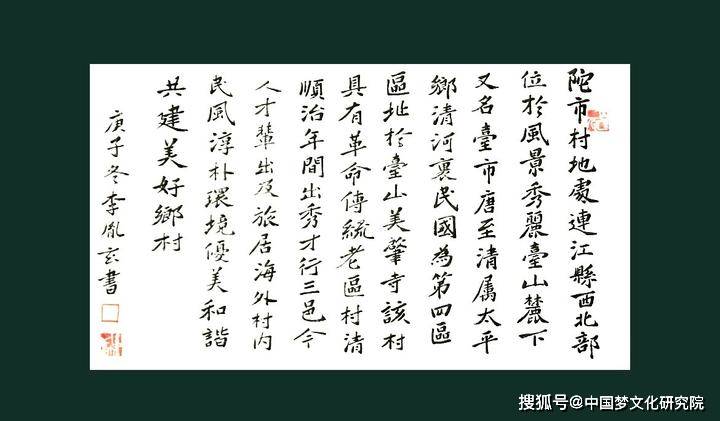 陀市村地處連江縣西北部
位於風景秀麗臺山麓下
又名臺市唐至清属太平
鄉清河裏民國為第四區
區址於臺山美肇寺該村
具有革命傳統老區村清
順治年間出秀才行三邑令
人才輩出及旅居海外村内
民風淳朴環境優美和諧
共建美好鄉村
庚子冬李胤玄書
搜狐号@中国梦文化研究院